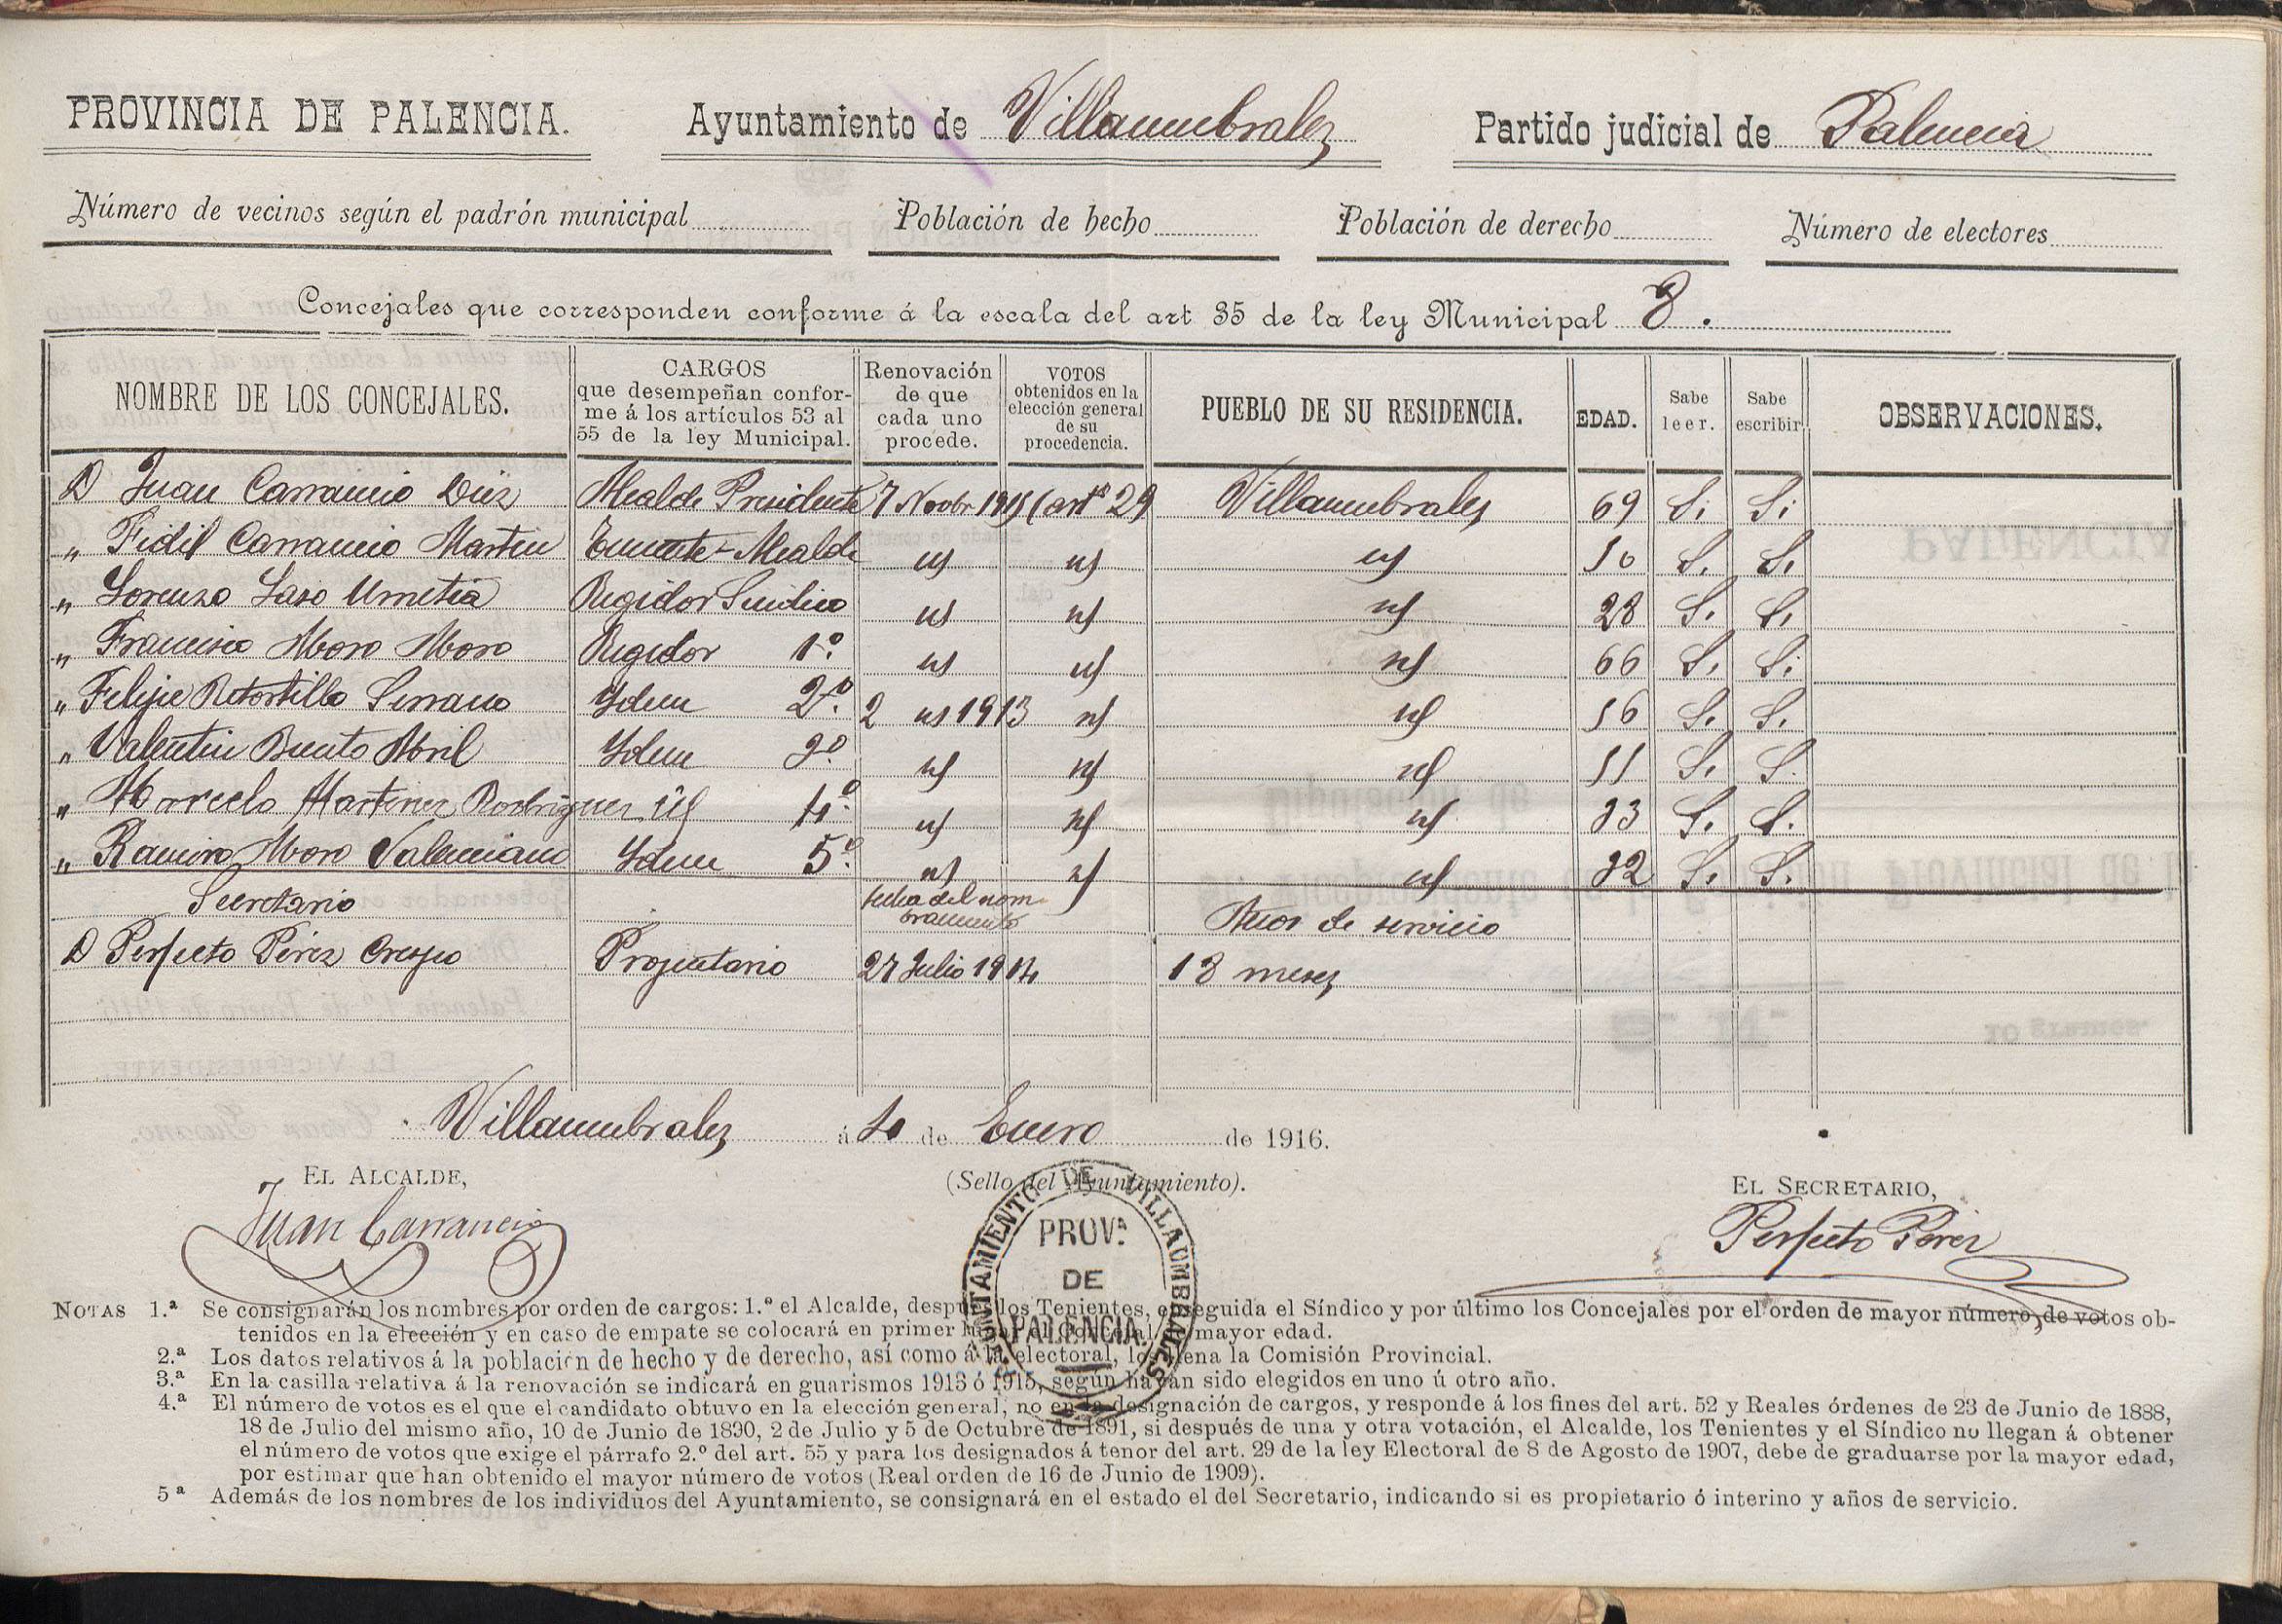 PROVINCIA DE PALENCIA. Ayuntamiento de Villaumbrales Partido judicial de Palencia
Número de vecinos según el padrón municipal Población de hecho Población de derecho Número de electores
Concejales que corresponden conforme á la escala del art 35 de la ley Municipal 8.
NOMBRE DE LOS CONCEJALES. CARGOS que desempeñan confor- Renovación de que cada uno procede. VOTOS obtenidos en la elección general de su procedencia. PUEBLO DE SU RESIDENCIA. EDAD. Sabe leer. Sabe escribir OBSERVACIONES.
me á los artículos 53 al
55 de la ley Municipal.
D Juan Carrancio Diez Alcalde Presidente 7 Novbr 1915 (artº 29 Villaumbrales 69 Si Si
" Fidel Carrancio Martin Teniente-Alcalde id id id 50 Si Si
" Lorenzo Laso Urrutia Regidor Sindico id id id 28 Si Si
" Francisco Moro Moro Regidor 1.º id id id 66 Si Si
" Felipe Retortillo Serrano Idem 2.º 2 id 1913 id id 56 Si Si
" Valentin Abril Idem 3.º id id id 51 Si Si
" Marcelo Martinez Rodriguez id 4.º id id id 33 Si Si
" Ramiro Moro Valenciano Idem 5.º id id id 32 Si Si
Secretario fecha del nom- Años de servicio
bramiento
D Perfecto Pérez Crespo Propietario 27 Julio 1914 18 meses
Villaumbrales á 4 de Enero de 1916.
EL ALCALDE, (Sello del Ayuntamiento). EL SECRETARIO,
Juan Carrancio Perfecto Pérez
AYUNTAMIENTO DE VILLAUMBRALES
PROV.ª
DE
PALENCIA.
NOTAS 1.ª Se consignarán los nombres por orden de cargos: 1.º el Alcalde, después los Tenientes, enseguida el Síndico y por último los Concejales por el orden de mayor número de votos ob-
tenidos en la elección y en caso de empate se colocará en primer lugar el Concejal de mayor edad.
2.ª Los datos relativos á la población de hecho y de derecho, así como á la electoral, los llena la Comisión Provincial.
3.ª En la casilla relativa á la renovación se indicará en guarismos 1913 ó 1915, según hayan sido elegidos en uno ú otro año.
4.ª El número de votos es el que el candidato obtuvo en la elección general, no en la designación de cargos, y responde á los fines del art. 52 y Reales órdenes de 23 de Junio de 1888,
18 de Julio del mismo año, 10 de Junio de 1890, 2 de Julio y 5 de Octubre de 1891, si después de una y otra votación, el Alcalde, los Tenientes y el Síndico no llegan á obtener
el número de votos que exige el párrafo 2.º del art. 55 y para los designados á tenor del art. 29 de la ley Electoral de 8 de Agosto de 1907, debe de graduarse por la mayor edad,
por estimar que han obtenido el mayor número de votos (Real orden de 16 de Junio de 1909).
5ª Además de los nombres de los individuos del Ayuntamiento, se consignará en el estado el del Secretario, indicando si es propietario ó interino y años de servicio.